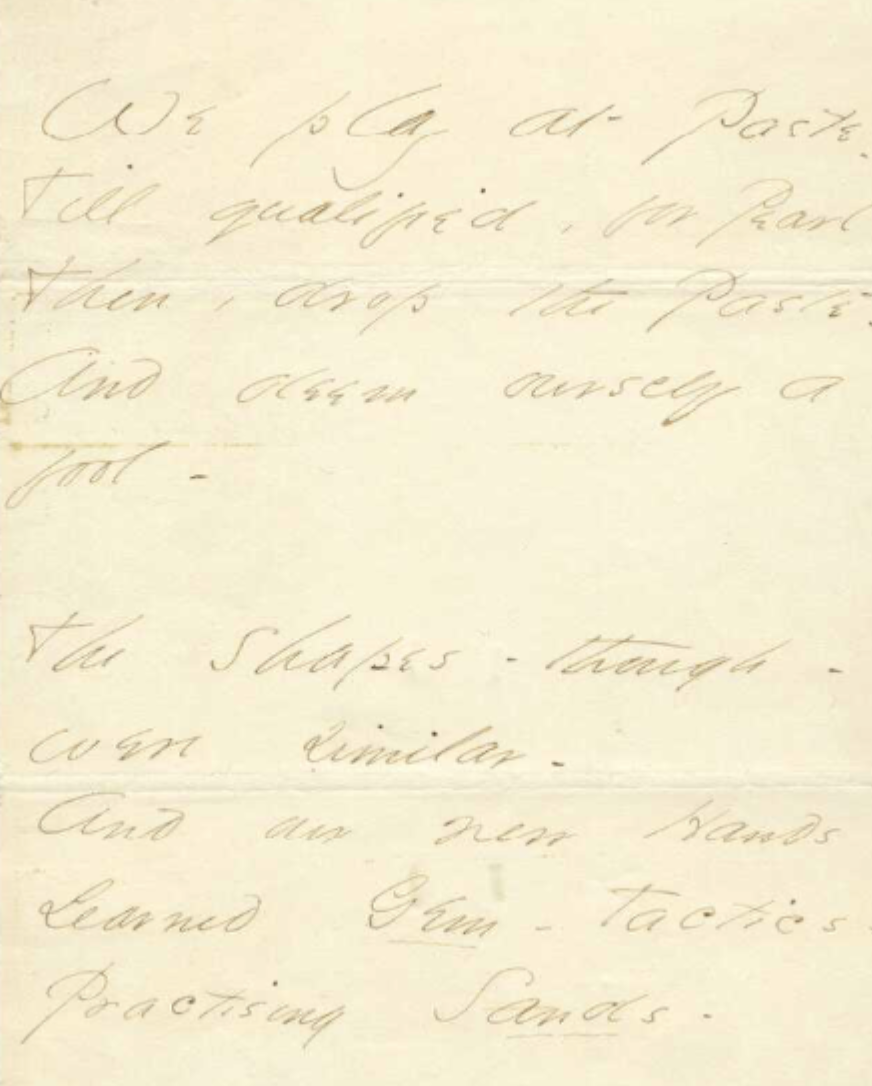 We play at Paste -
Till qualified, for Pearl
Then, drop the Paste -
And deem ourself a
fool -
The Shapes - though -
were similar -
And our new Hands
Learned Gem - Tactics -
Practising Sands -